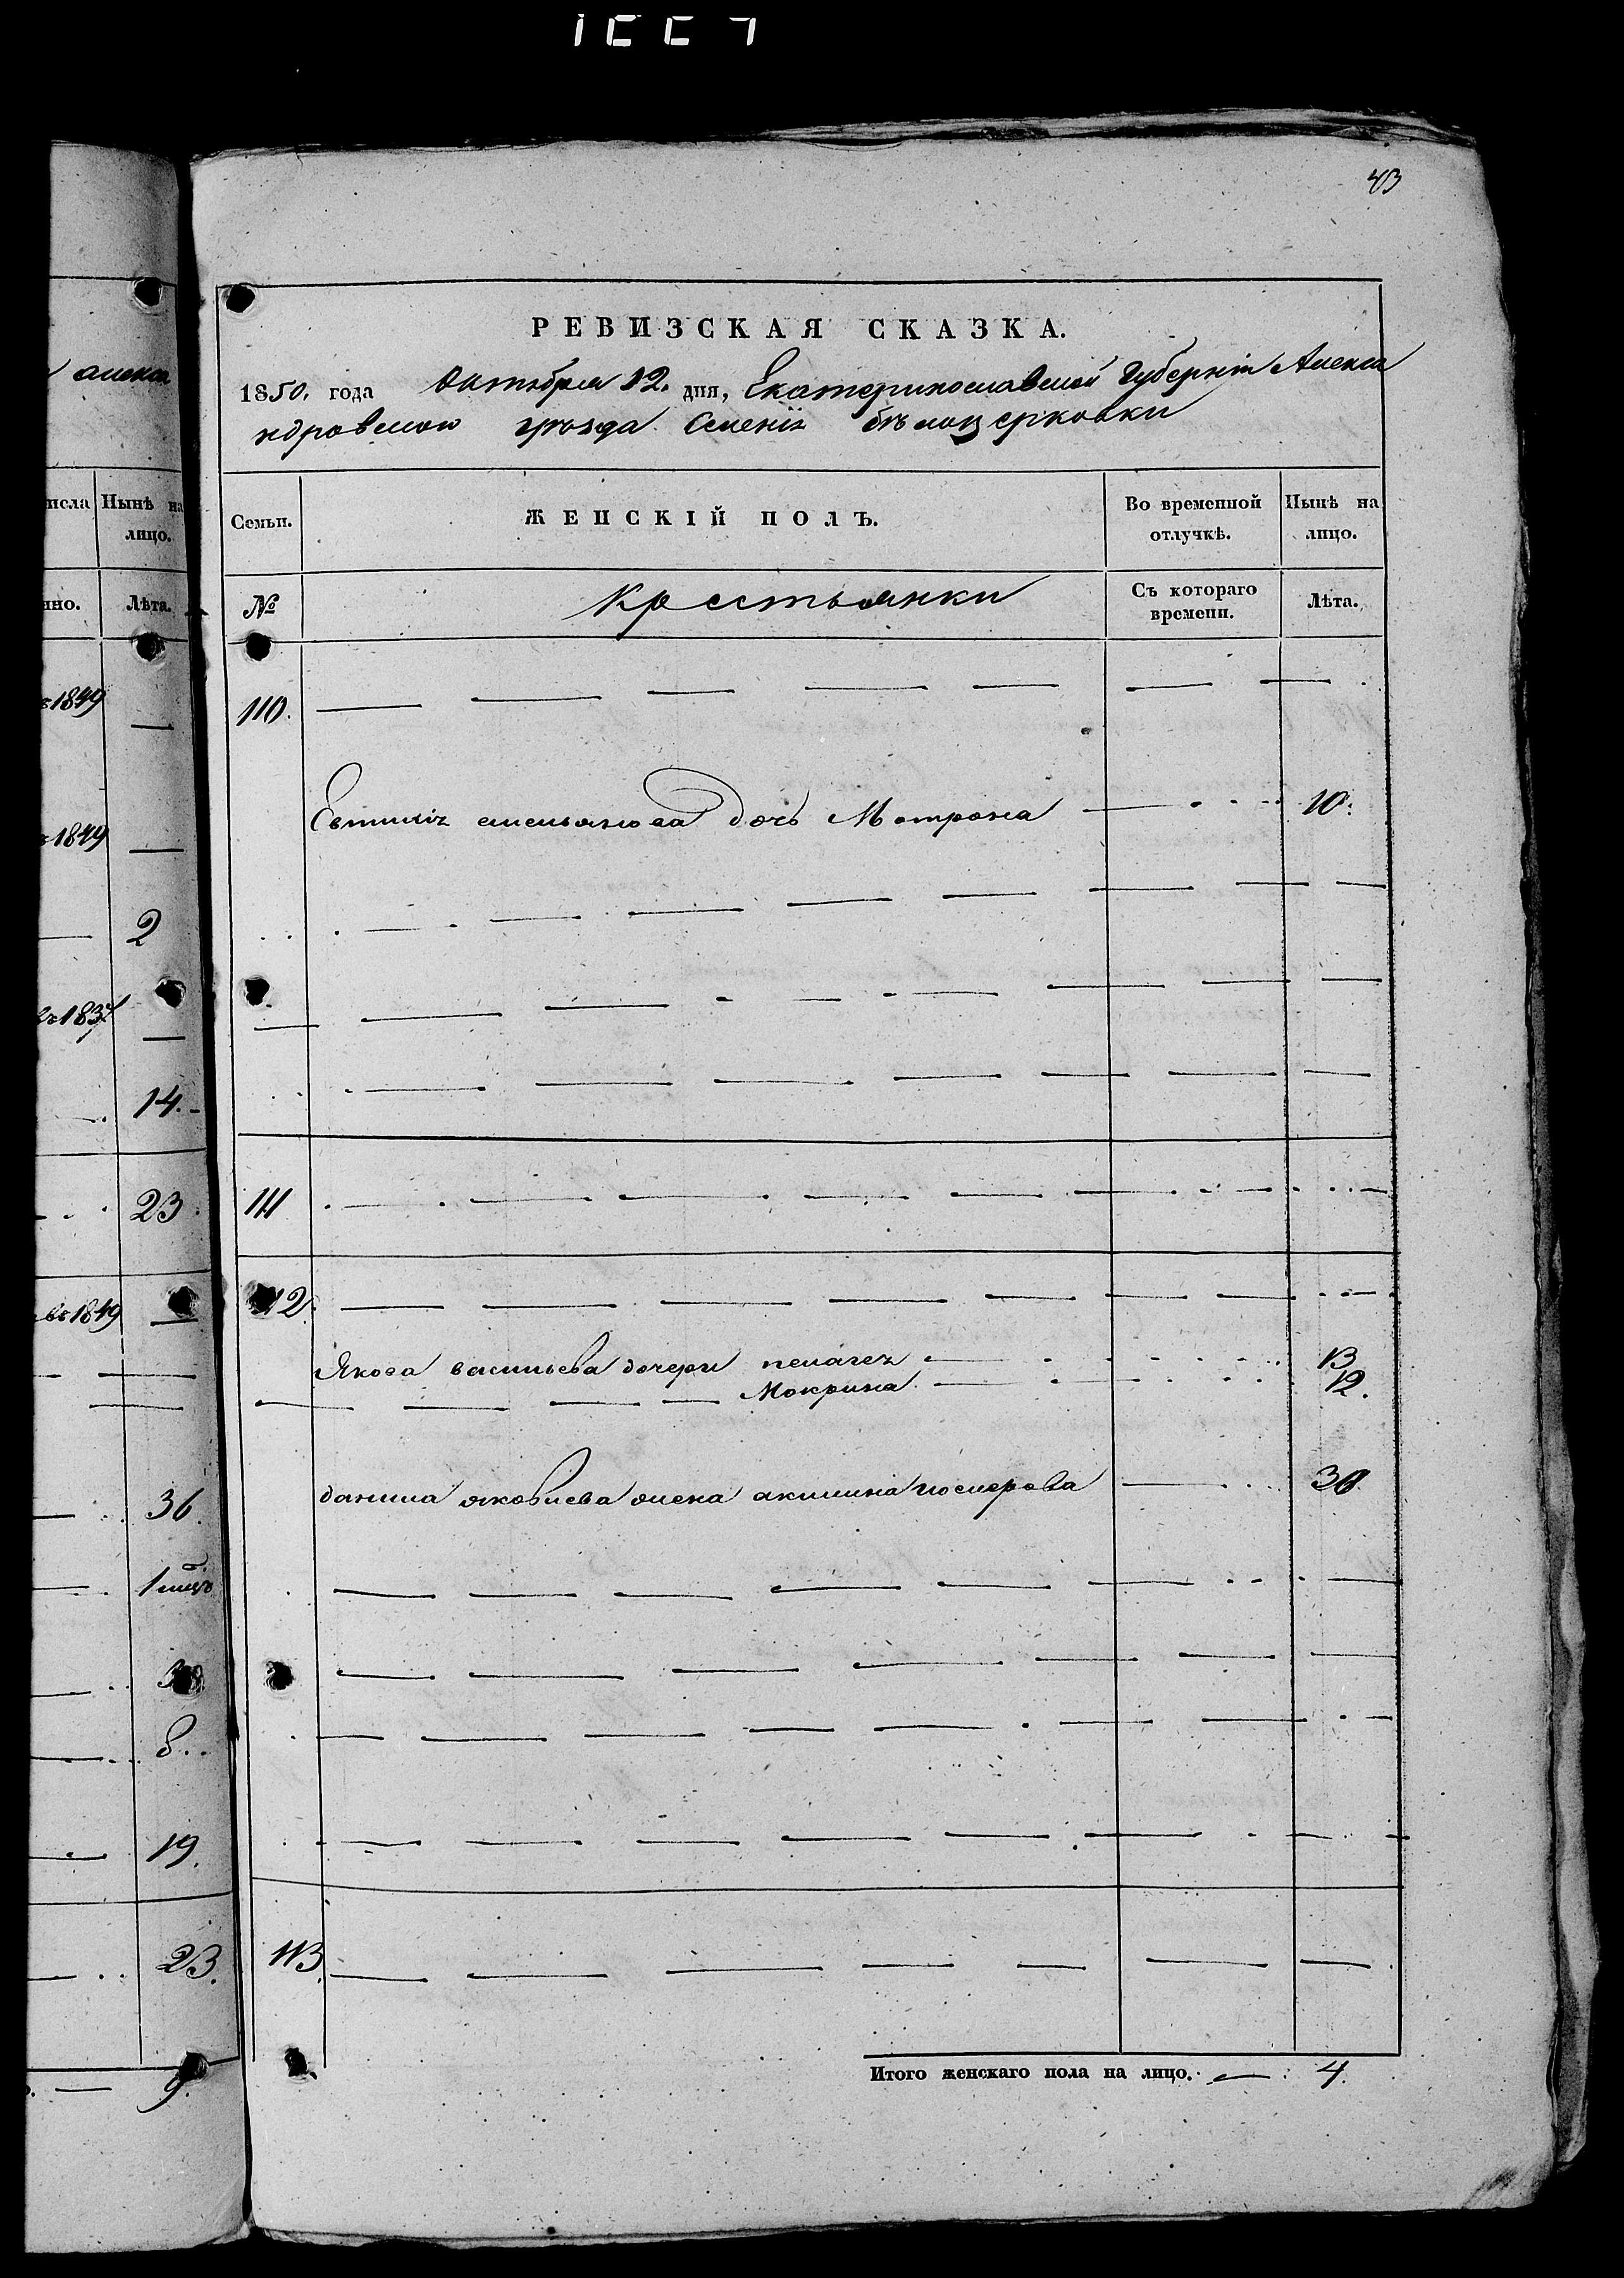 43
алекса
РЕВИЗСКАЯ СКАЗКА.
1850. года Октября 12. дня, Екатеринославской Губерніи Алекса
ндровскои уѣзда Селенія бѣлоцерковки
исла Нынѣ на лицо.
Семьи. ЖЕНСКІЙ ПОЛЪ. Во временной отлучкѣ. Нынѣ на лицо.
нно. Лѣта.
№ Крестьянки Съ котораго времени. Лѣта.
1849
110.
1849
Евтихія емельянова дочь Мотрона 10.
2
14.
23
111
въ 1849
112.
Якова васильева дочери пелагея 13
Мокрина 12.
36.
данила яковлева жена акилина 30
8
19.
23.
113.
9.
Итого женскаго пола на лицо. 4.